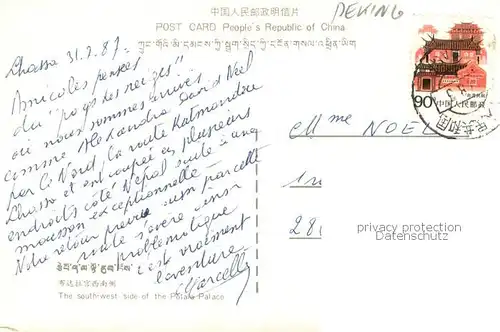 中国人民邮政明信片
PEKING
POST CARD People's Republic of China
ཀྲུང་གོའི་མི་དམངས་ཀྱི་སྦྲག་སྲིད་ཀྱི་དངོན་གསལ་འཕྲིན་ཡིག
Lhassa 31.7.87
Amicales pensées
du "pays des neiges"
où nous sommes arrivés
comme Alexandra David Neel
par le Nord, la route Katmandou
Lhassa est coupée en plusieurs
endroits côté Népal suite à une
mousson exceptionnelle
Notre retour prévu par cette
route s'avère ainsi
problématique
c'est vraiment
l'aventure
Marcelle
90
中国人民邮政
Mme NOEL
28
privacy protection
Datenschutz
布达拉宫西南侧
The southwest side of the Potala Palace